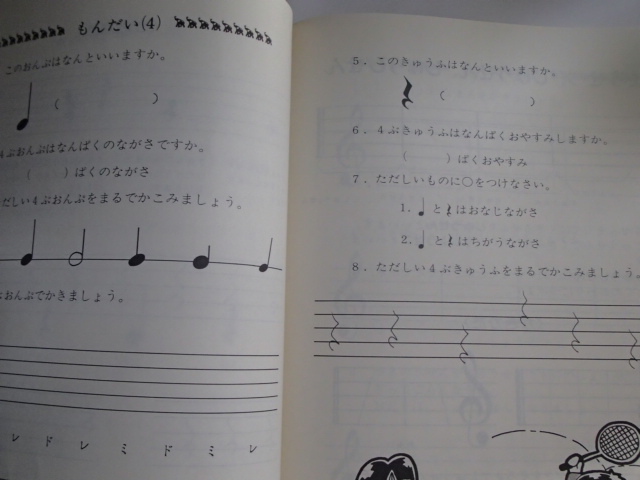 もんだい(4)
このおんぷはなんといいますか。
( )
4ぶおんぷはなんぱくのながさですか。
( )ぱくのながさ
だしい4ぶおんぷをまるでかこみましょう。
ぶおんぷでかきましょう。
レ ド レ ミ ド ミ レ
5. このきゅうふはなんといいますか。
( )
6. 4ぶきゅうふはなんぱくおやすみしますか。
( )ぱくおやすみ
7. ただしいものに○をつけなさい。
1. ♩と𝄽はおなじながさ
2. ♩と𝄽はちがうながさ
8. ただしい4ぶきゅうふをまるでかこみましょう。